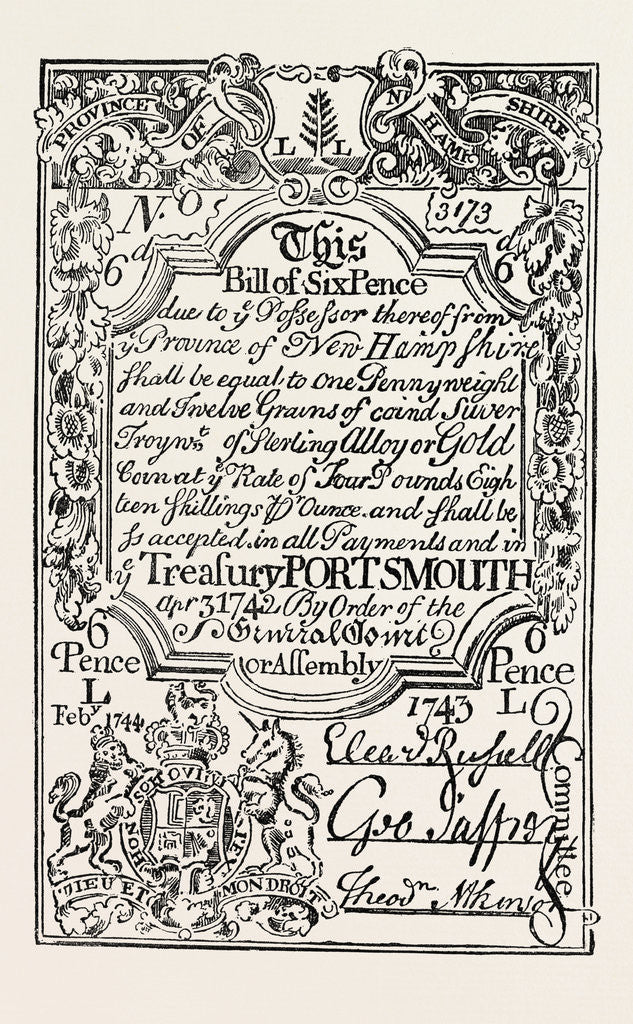 PROVINCE OF NE HAMP SHIRE
L L
N.o 3173
6d 6d
This
Bill of SixPence
due to ye Poſseſsor thereof from
ye Province of New Hampſhire
ſhall be equal to one Pennyweight
and Twelve Grains of coind Silver
Troywt. of Sterling Alloy or Gold
Coin at ye Rate of Four Pounds Eigh
teen ſhillings Pr Ounce. and ſhall be
ſs accepted in all Payments and in
ye Treaſury PORTSMOUTH
Apr 3 1742 By Order of the
General Court
or Aſsembly
6 Pence
6 Pence
L
L
Feby 1744
1743
HON SOIT QUI
DIEU ET MON DROIT
Elead Ruſsell
Geo Jaffrey
Theodr. Atkinson
Committee